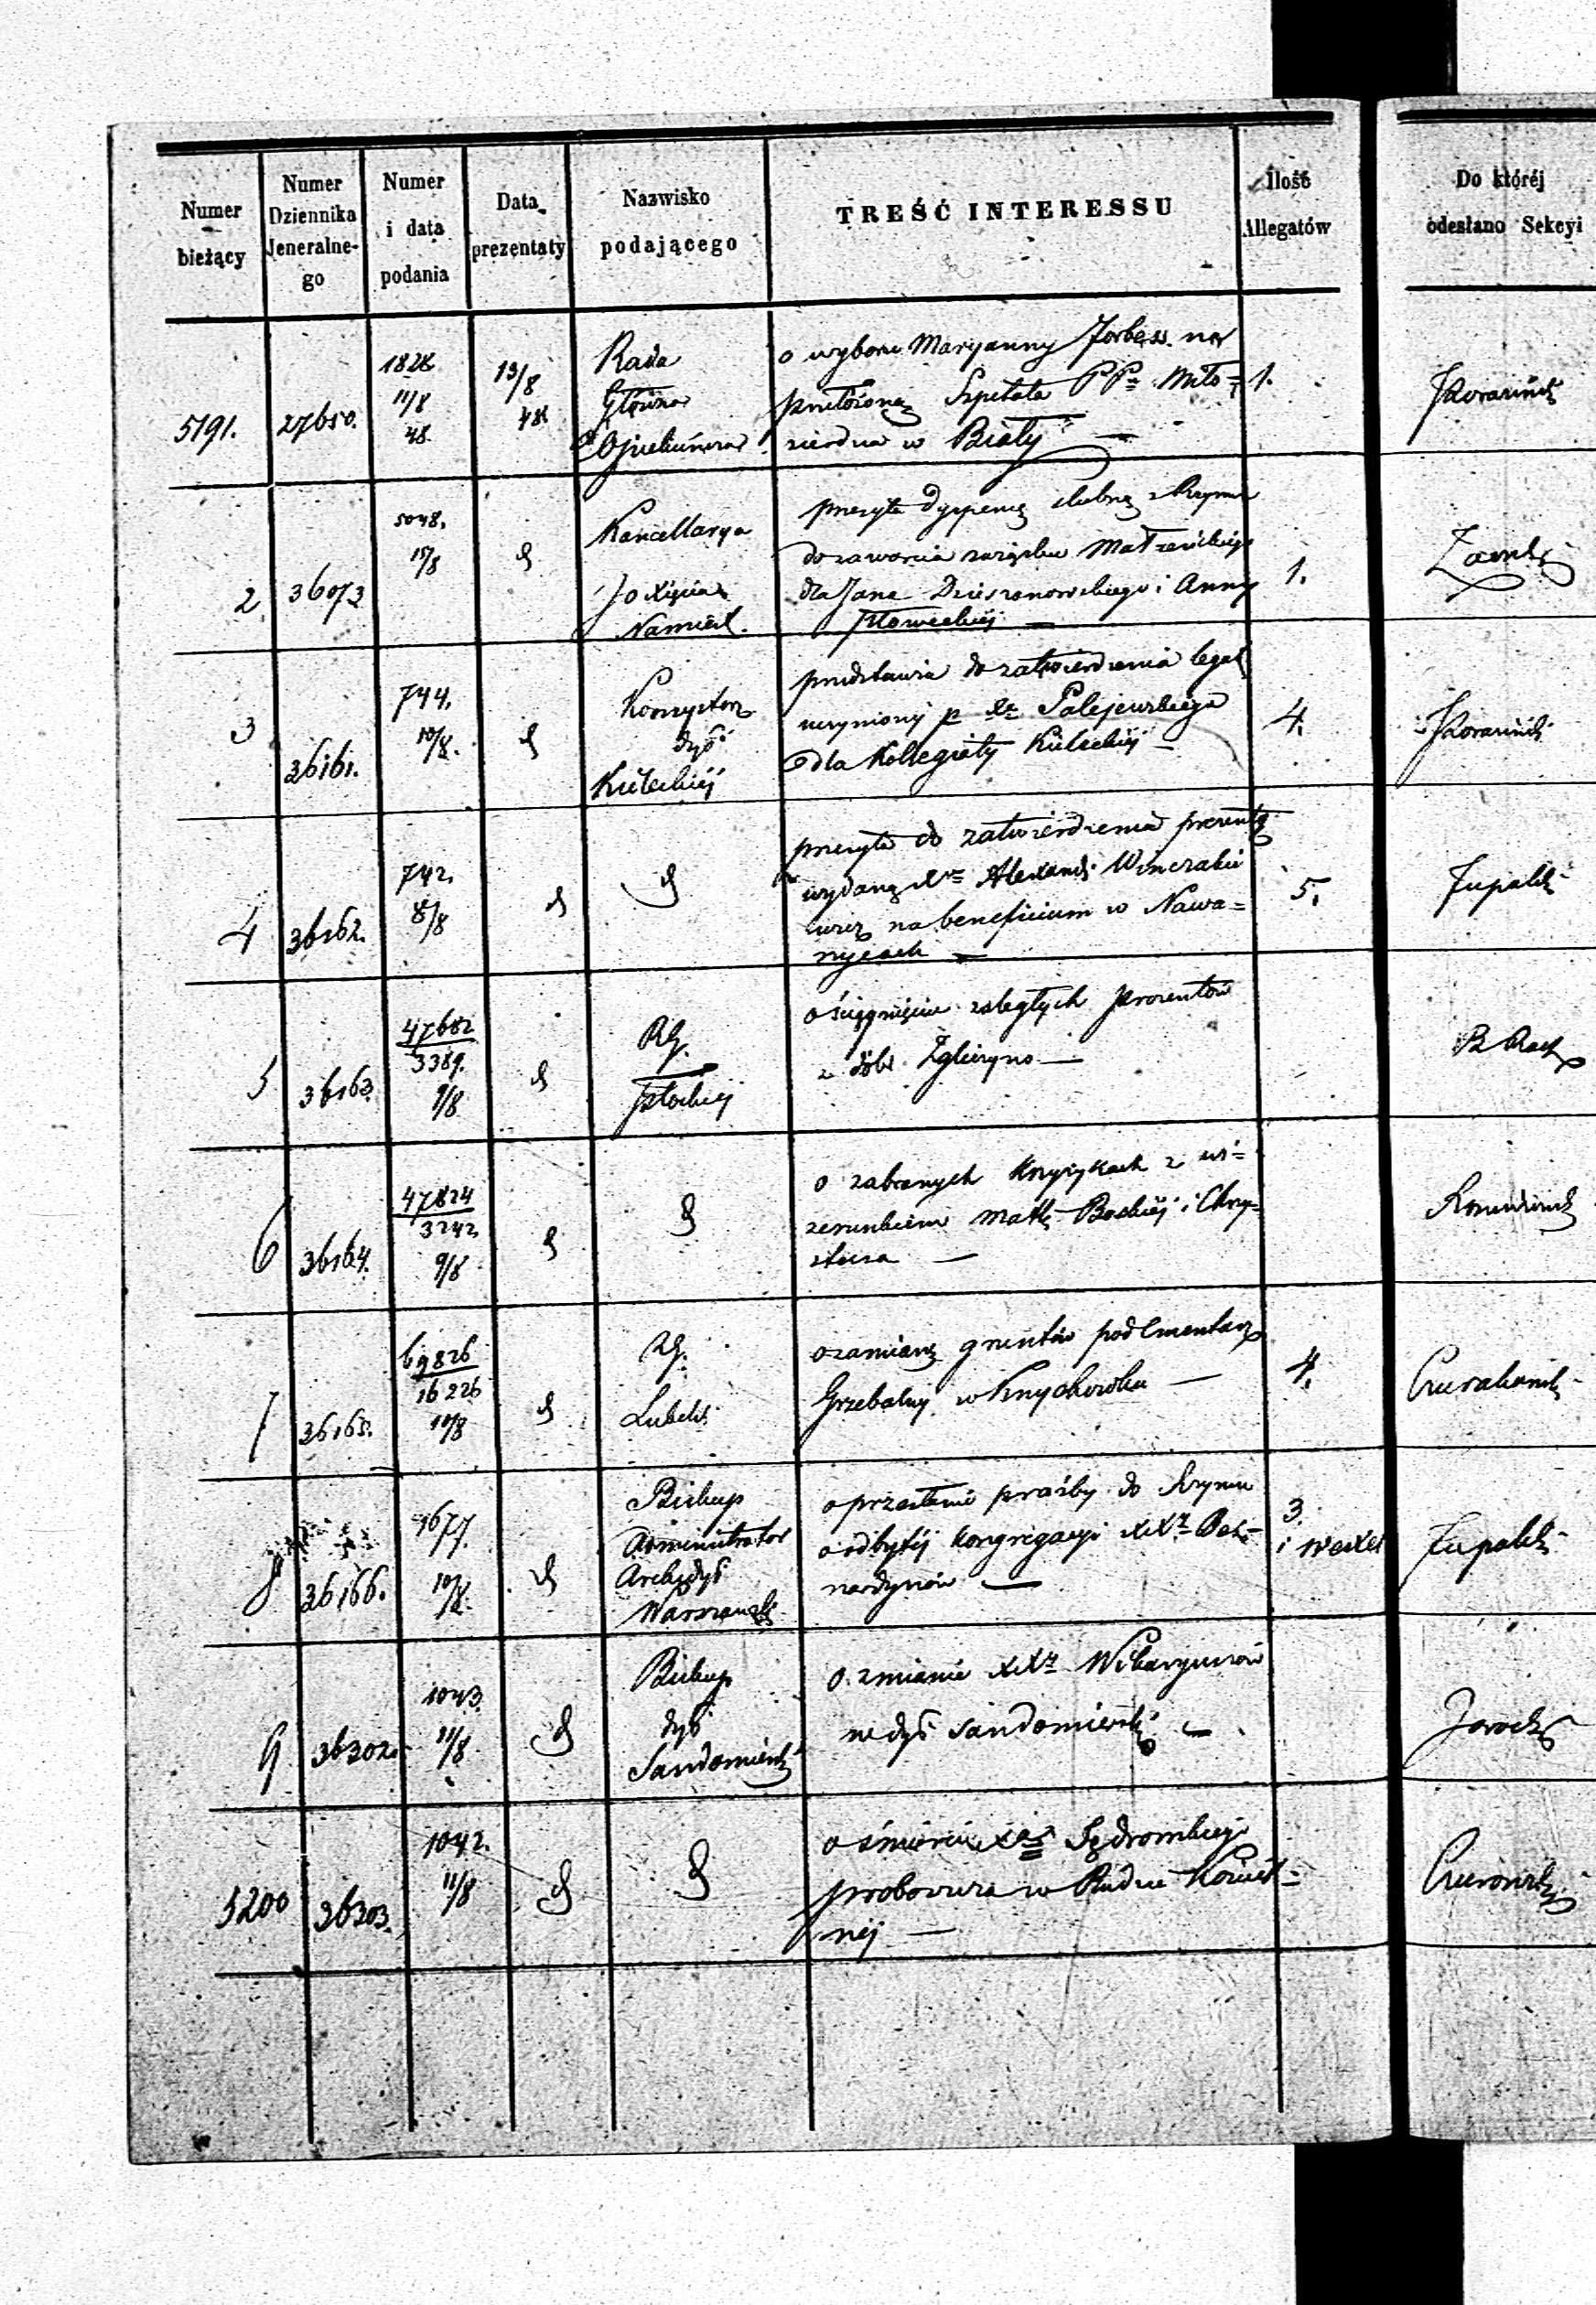 Numer bieżący
Numer Dziennika Jeneralne-go
Numer i data podania
Data prezentaty
Nazwisko podającego
TREŚĆ INTERESSU
Ilość Allegatów
Do któréj odesłano Sekcyi
5191.
27650.
1828
11/8
48.
13/8
48.
Rada
Główna
Opiekuńcza
o wyborze Maryanny na
przełożoną Szpitala PP. Miło=
sierdzia w Biały
1.
2
36073
5048.
15/8
Kancellarya
JO Xięcia
Namiest.
przesyła dyspensę ślubną z Rzymu
do zawarcia związku Małżeńskiego
dla Jana Dzieszanowskiego i Anny
Iłowieckiej
1.
3
36161.
744.
10/8.
Konsystorz
dyć
Kieleckiéj
przedstawia do zatwierdzenia legat
uczyniony p. Xa Palejewskiego
dla Kollegiaty Kieleckiéj
4.
4
36162.
742.
8/8
przesyła do zatwierdzenia prezentę
wydaną Alexand.
na beneficium w Nawa=
rzycach
5.
Zupalsk
5
36163.
47682
3389.
9/8
RG.
Płockiej
o ściągnięciu zaległych procentów
z dóbr Zgliczyno
6
36164.
47824
3242
9/8
o zabranych Krzyżykach z wi=
zerunkiem Matki Boskiéj i Chry=
stusa
7
36165.
69826
16226
10/8
RG.
Lubels.
o zamianę gruntów pod Cmentarz
Grzebalny w Knychówku
4.
8
36166.
1677.
10/8.
Biskup
Administrator
Archidyć
Warszawski
o przesłanie prośby do Rzymu
o odbytéj kongregacyi XXz Ber=
nardynów
3.
i wexel
Zupalsk
9
36302.
1043.
11/8.
Biskup
dyć
Sandomiersk
o zmianie XXz Wikaryuszów
w dyć Sandomiersk
5200
36303.
1042.
11/8
o śmierci Xa
proboszcza w Rudzie Kościel=
néj